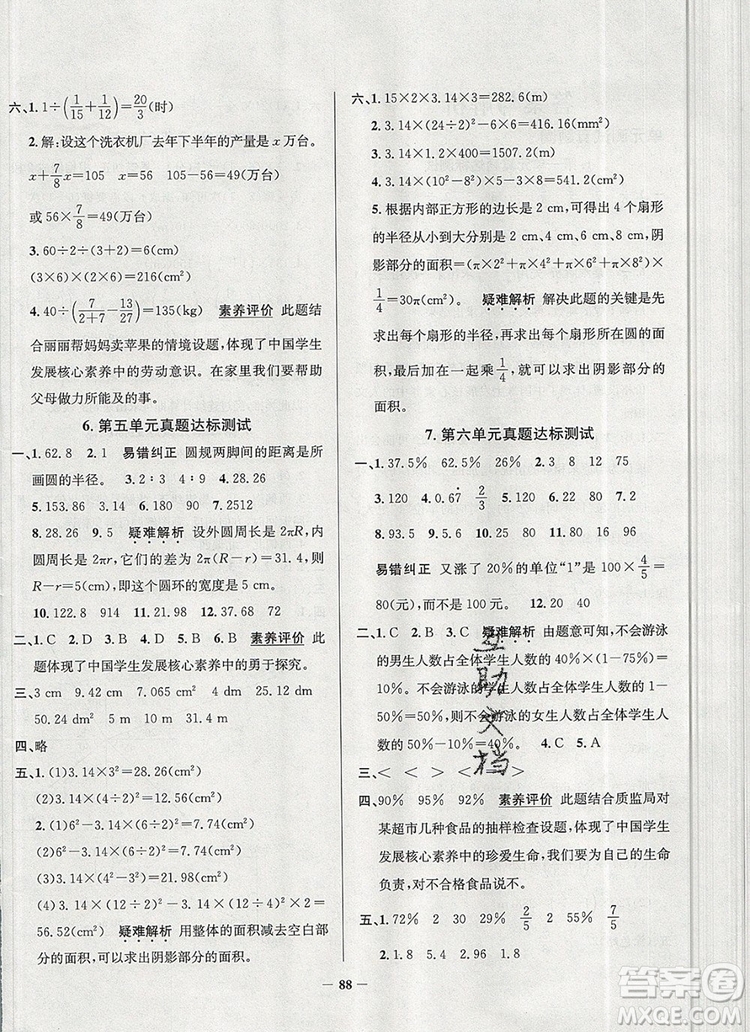 六、1. 1÷(1/15+1/12)=20/3(时)
2. 解：设这个洗衣机厂去年下半年的产量是 x 万台。
x+7/8x=105　x=56　105−56=49(万台)
或 56×7/8=49(万台)
3. 60÷2÷(3+2)=6(cm)
(3×6)×(2×6)=216(cm²)
4. 40÷(7/(2+7)−13/27)=135(kg)　素养评价　此题结
合丽丽帮妈妈卖苹果的情境设题，体现了中国学生
发展核心素养中的劳动意识。在家里我们要帮助
父母做力所能及的事。
6. 第五单元真题达标测试
一、1. 62.8　2. 4　易错纠正　圆规两脚间的距离是所
画圆的半径。　3. 2∶3　4∶9　4. 28.26
5. 153.86　3.14　6. 90　7. 2512
8. 28.26　9. 5　疑难解析　设外圆周长是 2πR，内
圆周长是 2πr，它们的差为 2π(R−r)=31.4，则
R−r=5(cm)，这个圆环的宽度是 5 cm。
10. 122.8　94　11. 21.98　12. 37.68　72
二、1. C　2. D　3. A　4. B　5. C　素养评价　此
题体现了中国学生发展核心素养中的勇于探究。
三、3 cm　9.42 cm　7.065 cm²　4 dm　25.12 dm
50.24 dm²　5 m　10 m　78.5 m²
四、略
五、1. (1)3.14×3²=28.26(cm²)
(2)3.14×(4÷2)²=12.56(cm²)
2. (1)6²−3.14×(6÷2)²=7.74(cm²)
(2)6²−3.14×(6÷2)²=7.74(cm²)
(3)6²−3.14×(6÷2)²=7.74(cm²)
(4) 3.14×(12÷2)²−3.14×(12÷2÷2)²×2=
56.52(cm²)　疑难解析　用整体的面积减去空白部分
的面积，可以求出阴影部分的面积。
六、1. 15×2×3.14×3=282.6(m)
2. 3.14×(20÷2+6)²−3.14×(20÷2)²=416.16(mm²)
3. 3.14×1.2×400=1507.2(m)
4. 3.14×(10²−8²)×5×3×8=13564.8(cm²)
5. 根据内部正方形的边长是 2 cm，可得出 4 个扇形
的半径从小到大分别是 2 cm、4 cm、6 cm、8 cm，阴
影部分的面积=(2²×π+π×4²+π×6²+π×8²)×
1/4=30π(cm²)　疑难解析　解决此题的关键是先
求出每个扇形的半径，再求出每个扇形所在圆的面
积，然后加在一起乘 1/4，就可以求出阴影部分的
面积。
7. 第六单元真题达标测试
一、1. 37.5%　62.5%　26%　2. 3　8　12　75
3. 120　4. 0.67　2/3　5. 120　6. 2.4　7. 90
8. 93.5　9. 1500　10. 15　80　18　96　11. 96
易错纠正　又涨了 20%的单位“1”是 100×4/5=
80(元)，而不是 100 元。　12. 20　40
二、1. C　2. B　3. C　疑难解析　由题意可知，不会游泳
的男生人数占全体学生人数的 40%×(1−75%)=
10%。不会游泳的学生人数占全体学生人数的 1−
50%=50%，则不会游泳的女生人数占全体学生人
数的 50%−10%=40%。　4. C　5. A
三、<　<　>　<　>　<
四、90%　95%　92%　素养评价　此题结合质监局对
某超市几种食品的抽样检查设题，体现了中国学生
发展核心素养中的珍爱生命，我们要为自己的生命
负责，对不合格食品说不。
五、1. 72%　2　2　30　29　2　55%　7/5
2. 1.8　5.4　2.96　1.3
88
互助文档
答案圈
MXQE.COM